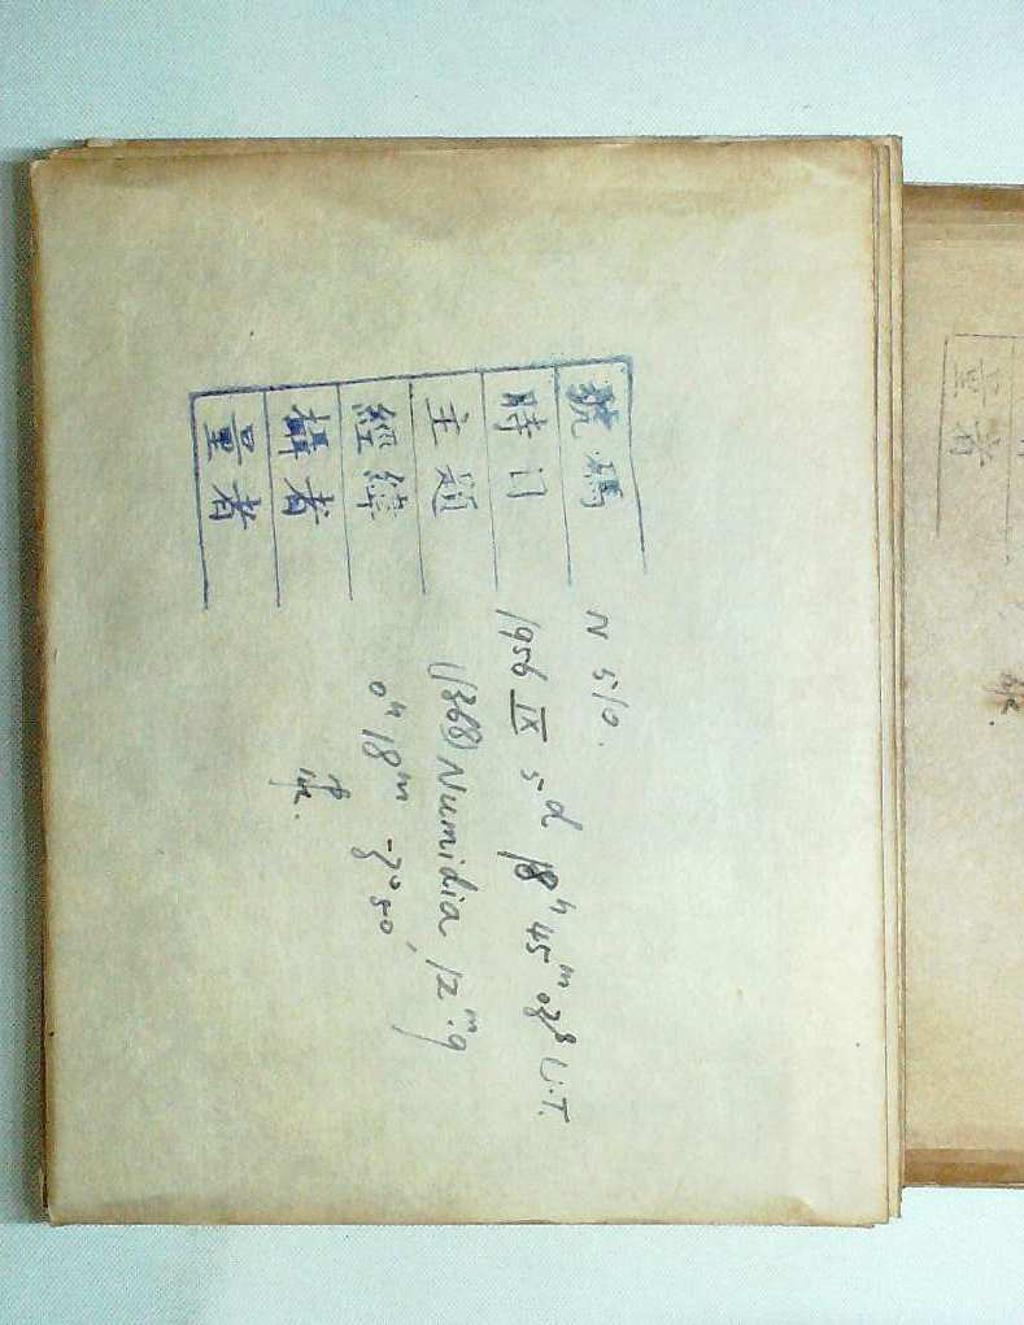 號碼 N 510.
時间 1956 IX 5ᵈ 18ʰ 45ᵐ 03ˢ U.T.
主題 (1368) Numidia 12ᵐ.9
經緯 0ʰ 18ᵐ -3° 50'
攝者
量者
量者